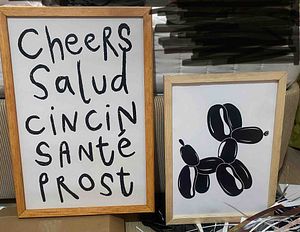 CheeRS
Salud
CinCin
SANTÉ
PROST